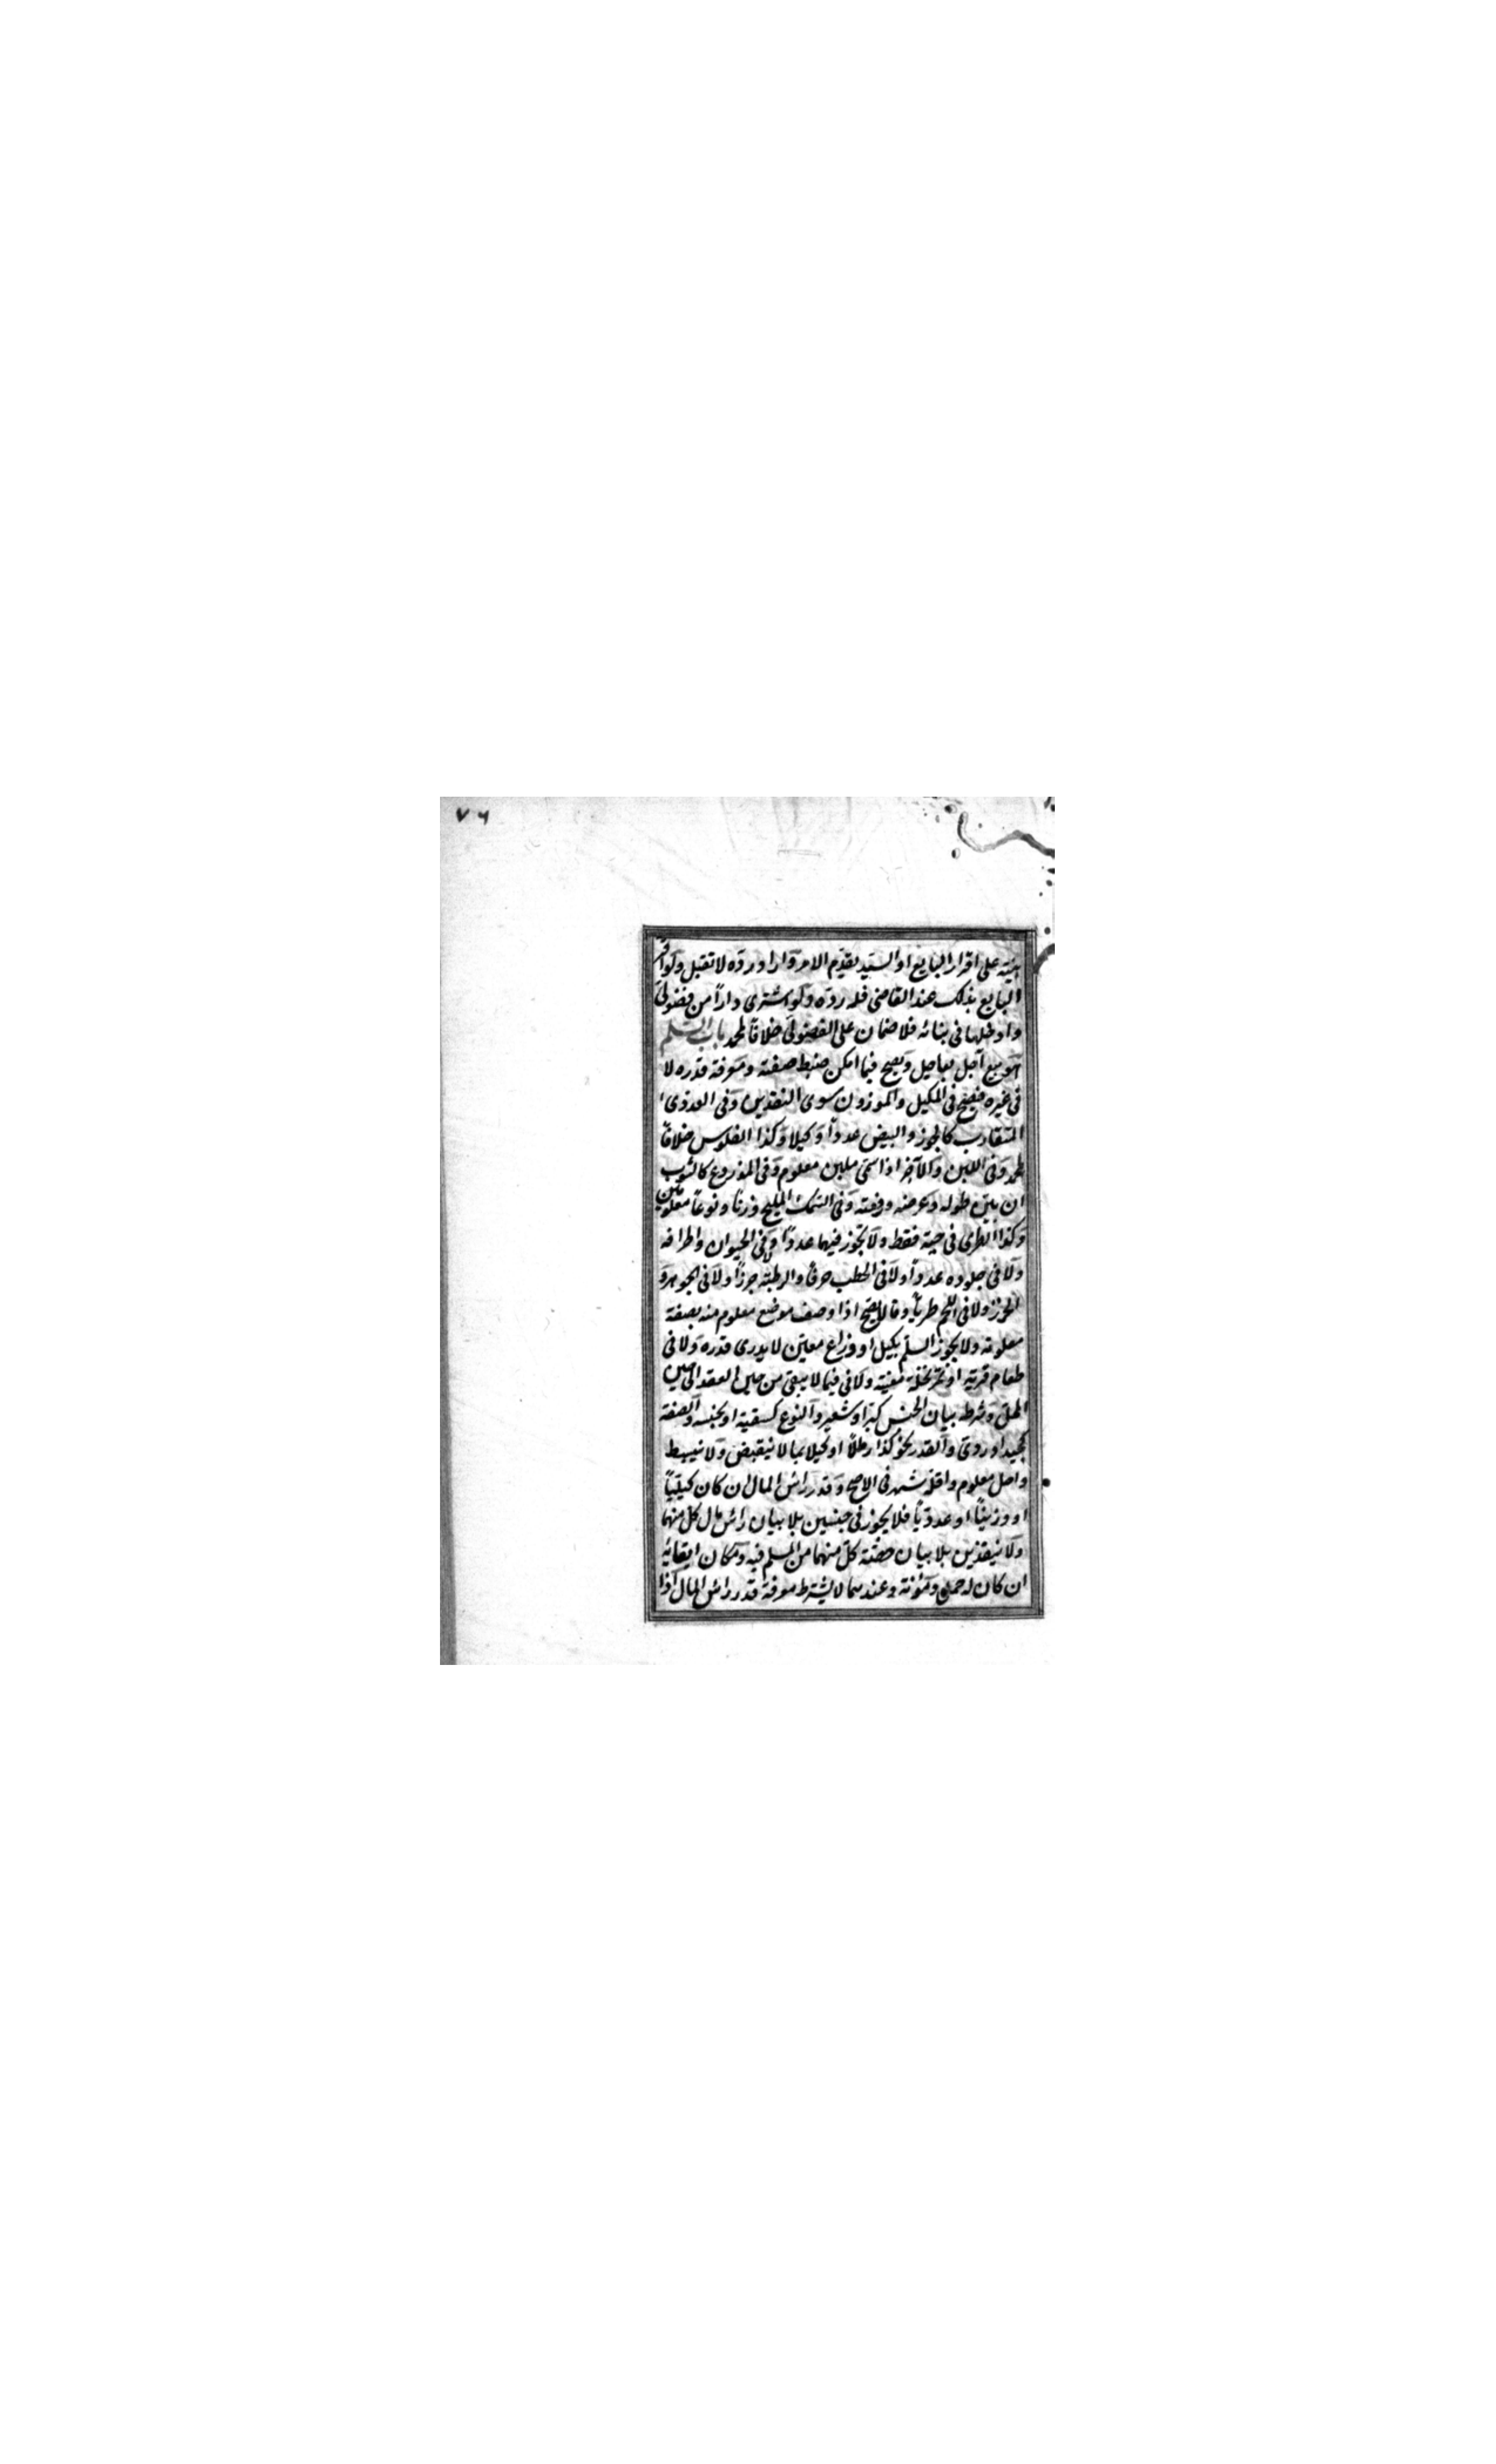 ٧٦
بينة على اقرار البايع او السيد بعدم الامر واراد رده لا تقبل ولو اقر
البايع بذلك عند القاضى فله رده ولو اشترى دارا من فضولى
وادخلها فى بنائه فلا ضمان على الفضولى خلافا لمحمد باب السلم
هو بيع آجل بعاجل ويصح فيما امكن ضبط صفته ومعرفة قدره لا
فى غيره فيصح فى المكيل والموزون سوى النقدين وفى العددى
المتقارب كالجوز والبيض عددا وكيلا وكذا الفلوس خلافا
لمحمد وفى اللبن والآجر اذا سمى ملبن معلوم وفى المذروع كالثوب
ان بين طوله وعرضه ورقعته وفى السمك المليح وزنا ونوعا معلومين
وكذا الطرى فى حينه فقط ولا يجوز فيهما عددا ولا فى الحيوان واطرافه
ولا فى جلوده عددا ولا فى الحطب حزما والرطبة جرزا ولا فى الجوهر و
الخرز ولا فى اللحم طريا وقالا يصح اذا وصف موضع معلوم منه بصفة
معلومة ولا يجوز السلم بكيل او ذراع معين لا يدرى قدره ولا فى
طعام قرية او تمر نخلة معينة ولا فى فيما لا يبقى من حين العقد الى حين
المحل وشرطه بيان الجنس كبر او شعير والنوع كسقية او بخسه والصفة
كجيد او ردى والقدر نحو كذا رطلا او كيلا بما لا ينقبض ولا ينبسط
واجل معلوم واقله شهر فى الاصح وقدر رأس المال ان كان كيليا
او وزنيا او عدديا فلا يجوز فى جنسين بلا بيان رأس مال كل منهما
ولا بنقدين بلا بيان حصة كل منهما من المسلم فيه ومكان ايفائه
ان كان له حمل ومئونة وعندهما لا يشترط معرفة قدر رأس المال اذا